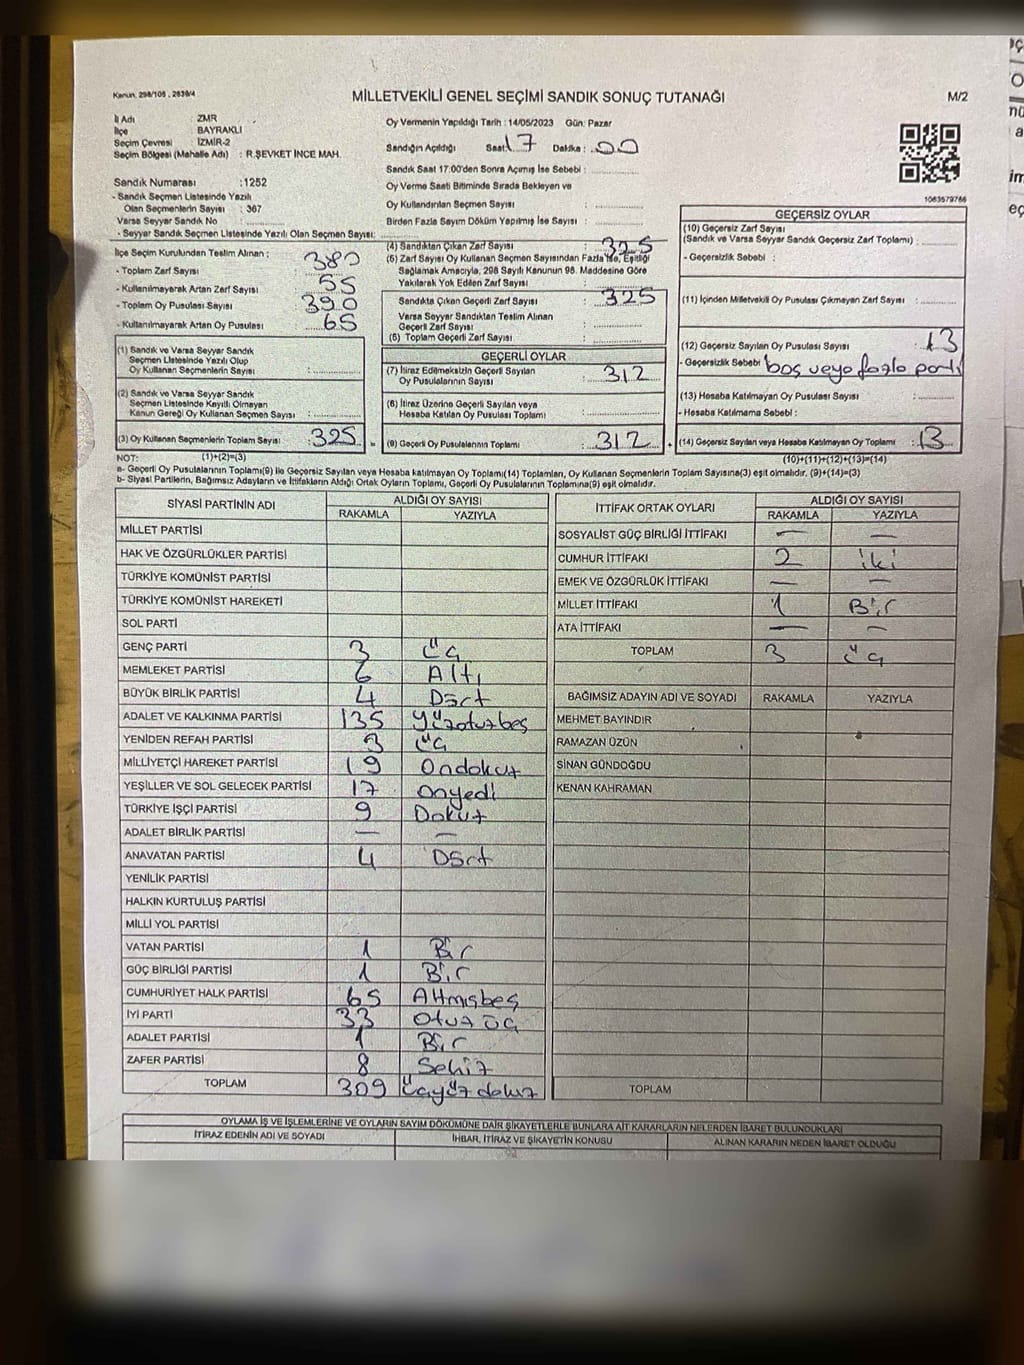 Kanun. 298/105 , 2839/4
MİLLETVEKİLİ GENEL SEÇİMİ SANDIK SONUÇ TUTANAĞI
M/2
İl Adı ZMR
İlçe BAYRAKLI
Seçim Çevresi İZMİR-2
Seçim Bölgesi (Mahalle Adı) : R.ŞEVKET İNCE MAH.
Oy Vermenin Yapıldığı Tarih : 14/05/2023 Gün: Pazar
Sandığın Açıldığı Saat: 17 Dakika : 00
Sandık Saat 17:00'den Sonra Açımış İse Sebebi :
Oy Verme Saati Bitiminde Sırada Bekleyen ve
Oy Kullandırılan Seçmen Sayısı :
Birden Fazla Sayım Döküm Yapılmış İse Sayısı :
1063579766
Sandık Numarası : 1252
- Sandık Seçmen Listesinde Yazılı
Olan Seçmenlerin Sayısı : 367
Varsa Seyyar Sandık No
- Seyyar Sandık Seçmen Listesinde Yazılı Olan Seçmen Sayısı:
İlçe Seçim Kurulundan Teslim Alınan :
- Toplam Zarf Sayısı 380
- Kullanılmayarak Artan Zarf Sayısı 55
- Toplam Oy Pusulası Sayısı 390
- Kullanılmayarak Artan Oy Pusulası 65
(1) Sandık ve Varsa Seyyar Sandık
Seçmen Listesinde Yazılı Olup
Oy Kullanan Seçmenlerin Sayısı :
(2) Sandık ve Varsa Seyyar Sandık
Seçmen Listesinde Kayıtlı Olmayan
Kanun Gereği Oy Kullanan Seçmen Sayısı :
(3) Oy Kullanan Seçmenlerin Toplam Sayısı : 325
(4) Sandıktan Çıkan Zarf Sayısı : 325
(5) Zarf Sayısı Oy Kullanan Seçmen Sayısından Fazla İse, Eşitliği
Sağlamak Amacıyla, 298 Sayılı Kanunun 98. Maddesine Göre
Yakılarak Yok Edilen Zarf Sayısı
Sandıkta Çıkan Geçerli Zarf Sayısı : 325
Varsa Seyyar Sandıktan Teslim Alınan
Geçerli Zarf Sayısı :
(6) Toplam Geçerli Zarf Sayısı :
GEÇERLİ OYLAR
(7) İtiraz Edilmeksizin Geçerli Sayılan
Oy Pusulalarının Sayısı : 312
(8) İtiraz Üzerine Geçerli Sayılan veya
Hesaba Katılan Oy Pusulası Toplamı :
(9) Geçerli Oy Pusulalarının Toplamı : 312
GEÇERSİZ OYLAR
(10) Geçersiz Zarf Sayısı
(Sandık ve Varsa Seyyar Sandık Geçersiz Zarf Toplamı) :
- Geçersizlik Sebebi :
(11) İçinden Milletvekili Oy Pusulası Çıkmayan Zarf Sayısı :
(12) Geçersiz Sayılan Oy Pusulası Sayısı : 13
- Geçersizlik Sebebi : boş veya fazla parti
(13) Hesaba Katılmayan Oy Pusulası Sayısı :
- Hesaba Katılmama Sebebi :
(14) Geçersiz Sayılan veya Hesaba Katılmayan Oy Toplamı : 13
NOT: (1)+(2)=(3) (10)+(11)+(12)+(13)=(14)
a- Geçerli Oy Pusulalarının Toplamı(9) ile Geçersiz Sayılan veya Hesaba katılmayan Oy Toplamı(14) Toplamları, Oy Kullanan Seçmenlerin Toplam Sayısına(3) eşit olmalıdır. (9)+(14)=(3)
b- Siyasi Partilerin, Bağımsız Adayların ve İttifakların Aldığı Ortak Oyların Toplamı, Geçerli Oy Pusulalarının Toplamına(9) eşit olmalıdır.
SİYASİ PARTİNİN ADI ALDIĞI OY SAYISI
RAKAMLA YAZIYLA
MİLLET PARTİSİ
HAK VE ÖZGÜRLÜKLER PARTİSİ
TÜRKİYE KOMÜNİST PARTİSİ
TÜRKİYE KOMÜNİST HAREKETİ
SOL PARTİ
GENÇ PARTİ 3 üç
MEMLEKET PARTİSİ 6 Altı
BÜYÜK BİRLİK PARTİSİ 4 Dört
ADALET VE KALKINMA PARTİSİ 135 Yüzotuzbeş
YENİDEN REFAH PARTİSİ 3 üç
MİLLİYETÇİ HAREKET PARTİSİ 19 Ondokuz
YEŞİLLER VE SOL GELECEK PARTİSİ 17 onyedi
TÜRKİYE İŞÇİ PARTİSİ 9 Dokuz
ADALET BİRLİK PARTİSİ — —
ANAVATAN PARTİSİ 4 Dört
YENİLİK PARTİSİ
HALKIN KURTULUŞ PARTİSİ
MİLLİ YOL PARTİSİ
VATAN PARTİSİ 1 Bir
GÜÇ BİRLİĞİ PARTİSİ 1 Bir
CUMHURİYET HALK PARTİSİ 65 Altmışbeş
İYİ PARTİ 33 Otuz üç
ADALET PARTİSİ 1 Bir
ZAFER PARTİSİ 8 Sekiz
TOPLAM 309 üçyüz dokuz
İTTİFAK ORTAK OYLARI ALDIĞI OY SAYISI
RAKAMLA YAZIYLA
SOSYALİST GÜÇ BİRLİĞİ İTTİFAKI — —
CUMHUR İTTİFAKI 2 iki
EMEK VE ÖZGÜRLÜK İTTİFAKI — —
MİLLET İTTİFAKI 1 Bir
ATA İTTİFAKI — —
TOPLAM 3 üç
BAĞIMSIZ ADAYIN ADI VE SOYADI RAKAMLA YAZIYLA
MEHMET BAYINDIR
RAMAZAN UZUN
SİNAN GÜNDOĞDU
KENAN KAHRAMAN
TOPLAM
OYLAMA İŞ VE İŞLEMLERİNE VE OYLARIN SAYIM DÖKÜMÜNE DAİR ŞİKAYETLERLE BUNLARA AİT KARARLARIN NELERDEN İBARET BULUNDUKLARI
İTİRAZ EDENİN ADI VE SOYADI İHBAR, İTİRAZ VE ŞİKAYETİN KONUSU ALINAN KARARIN NEDEN İBARET OLDUĞU